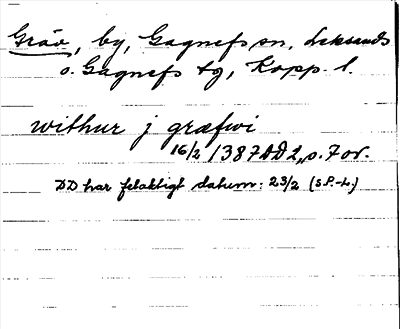 Gräv, by, Gagnefs sn, Leksands
o. Gagnefs tg, Kopp. l.
withur j græfwi
16/2 1387 DD 2, s. 7 or.
DD har felaktigt datum: 23/2 (S.P.-L.)